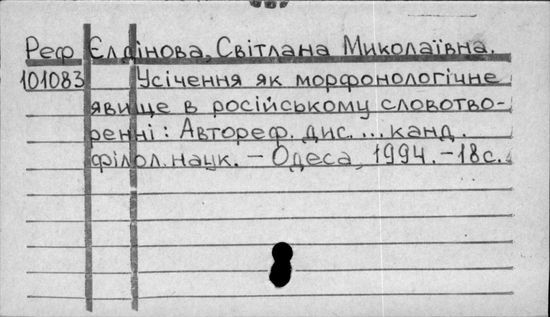 Реф Єлдінова, Світлана Миколаївна.
101083 Усічення як морфонологічне
явище в російському словотво-
ренні: Автореф. дис. ... канд.
філол. наук. - Одеса, 1994. - 18 с.